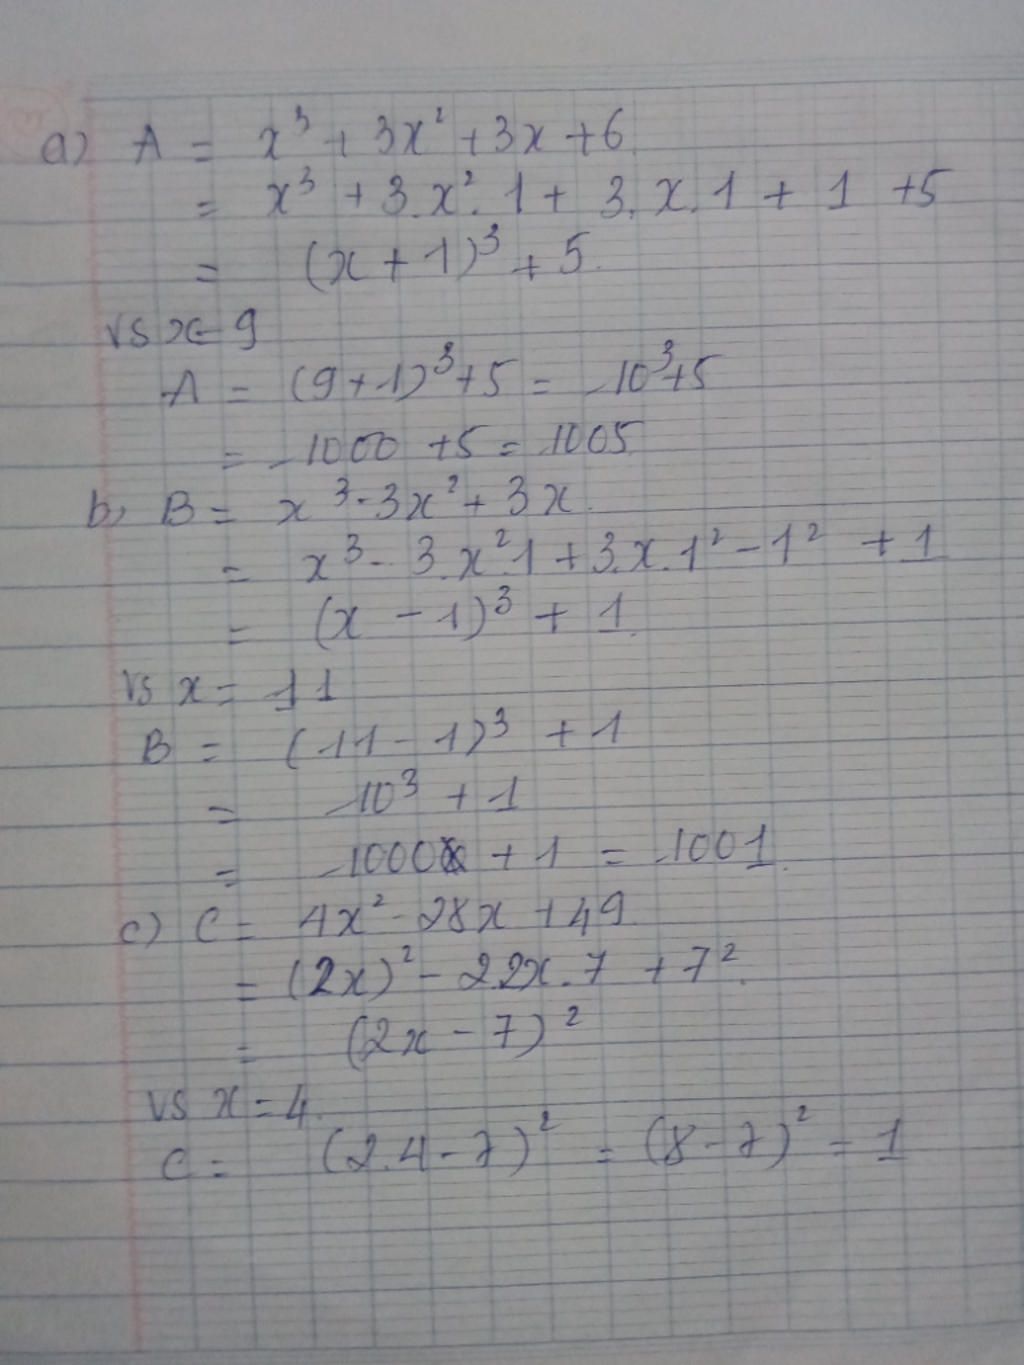 a) A = x³ + 3x² + 3x + 6
= x³ + 3.x².1 + 3.x.1 + 1 + 5
= (x + 1)³ + 5.
vs x = 9
A = (9 + 1)³ + 5 = 10³ + 5
= 1000 + 5 = 1005
b, B = x³ - 3x² + 3x.
= x³ - 3.x².1 + 3.x.1² - 1² + 1
= (x - 1)³ + 1
vs x = 11
B = (11 - 1)³ + 1
= 10³ + 1
= 1000 + 1 = 1001.
c) C = 4x² - 28x + 49
= (2x)² - 2.2x.7 + 7².
= (2x - 7)²
vs x = 4.
C = (2.4 - 7)² = (8 - 7)² = 1